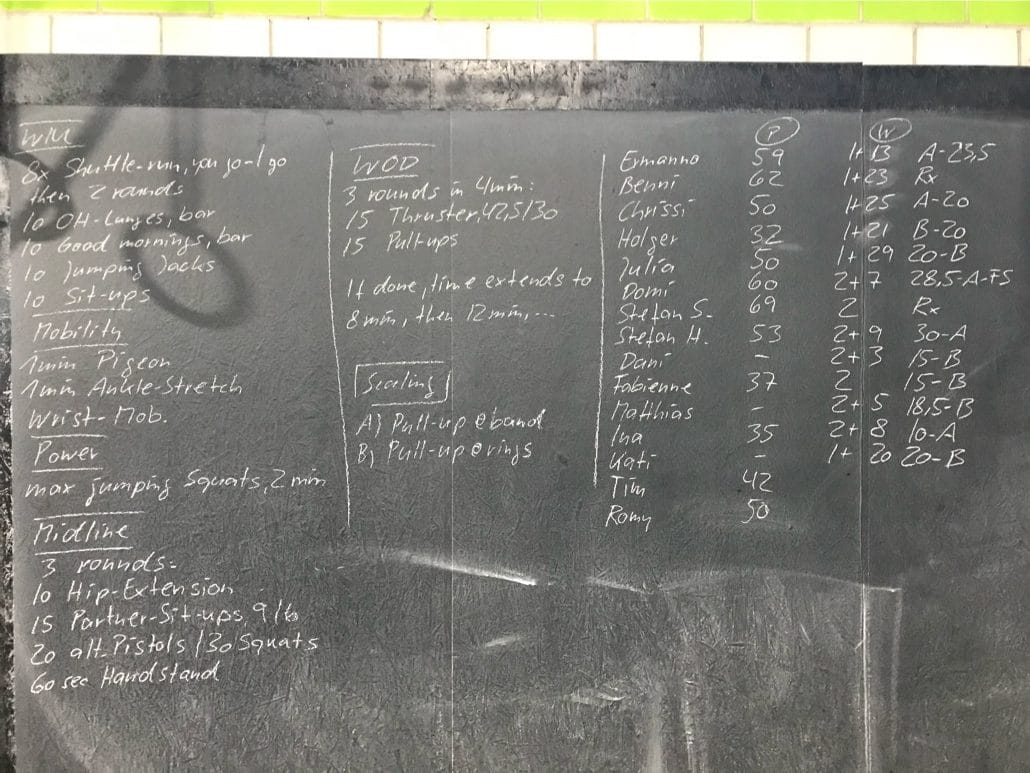 WM
8x Shuttle-run, you go-I go
then 2 rounds
10 OH-Lunges, bar
10 Good mornings, bar
10 Jumping Jacks
10 Sit-ups
Mobility
1min Pigeon
1min Ankle-Stretch
Wrist-Mob.
Power
max jumping Squats, 2 min
Midline
3 rounds.
10 Hip-Extension
15 Partner-Sit-ups, 9/6
20 alt. Pistols / 30 Squats
60 sec Handstand
WOD
3 rounds in 4min:
15 Thruster, 42,5/30
15 Pull-ups
If done, time extends to
8 min, then 12 min, ...
Scaling
A) Pull-up @band
B) Pull-up @rings
P W
Ermanno 59 1+13 A-23,5
Benni 62 1+23 Rx
Chrissi 50 1+25 A-20
Holger 32 1+21 B-20
Julia 50 1+29 20-B
Domi 60 2+7 28,5-A-FS
Stefan S. 69 2 Rx
Stefan H. 53 2+9 30-A
Dani - 2+3 15-B
Fabienne 37 2 15-B
Matthias - 2+5 18,5-B
Ina 35 2+8 10-A
Kati - 1+20 20-B
Tim 42
Romy 50